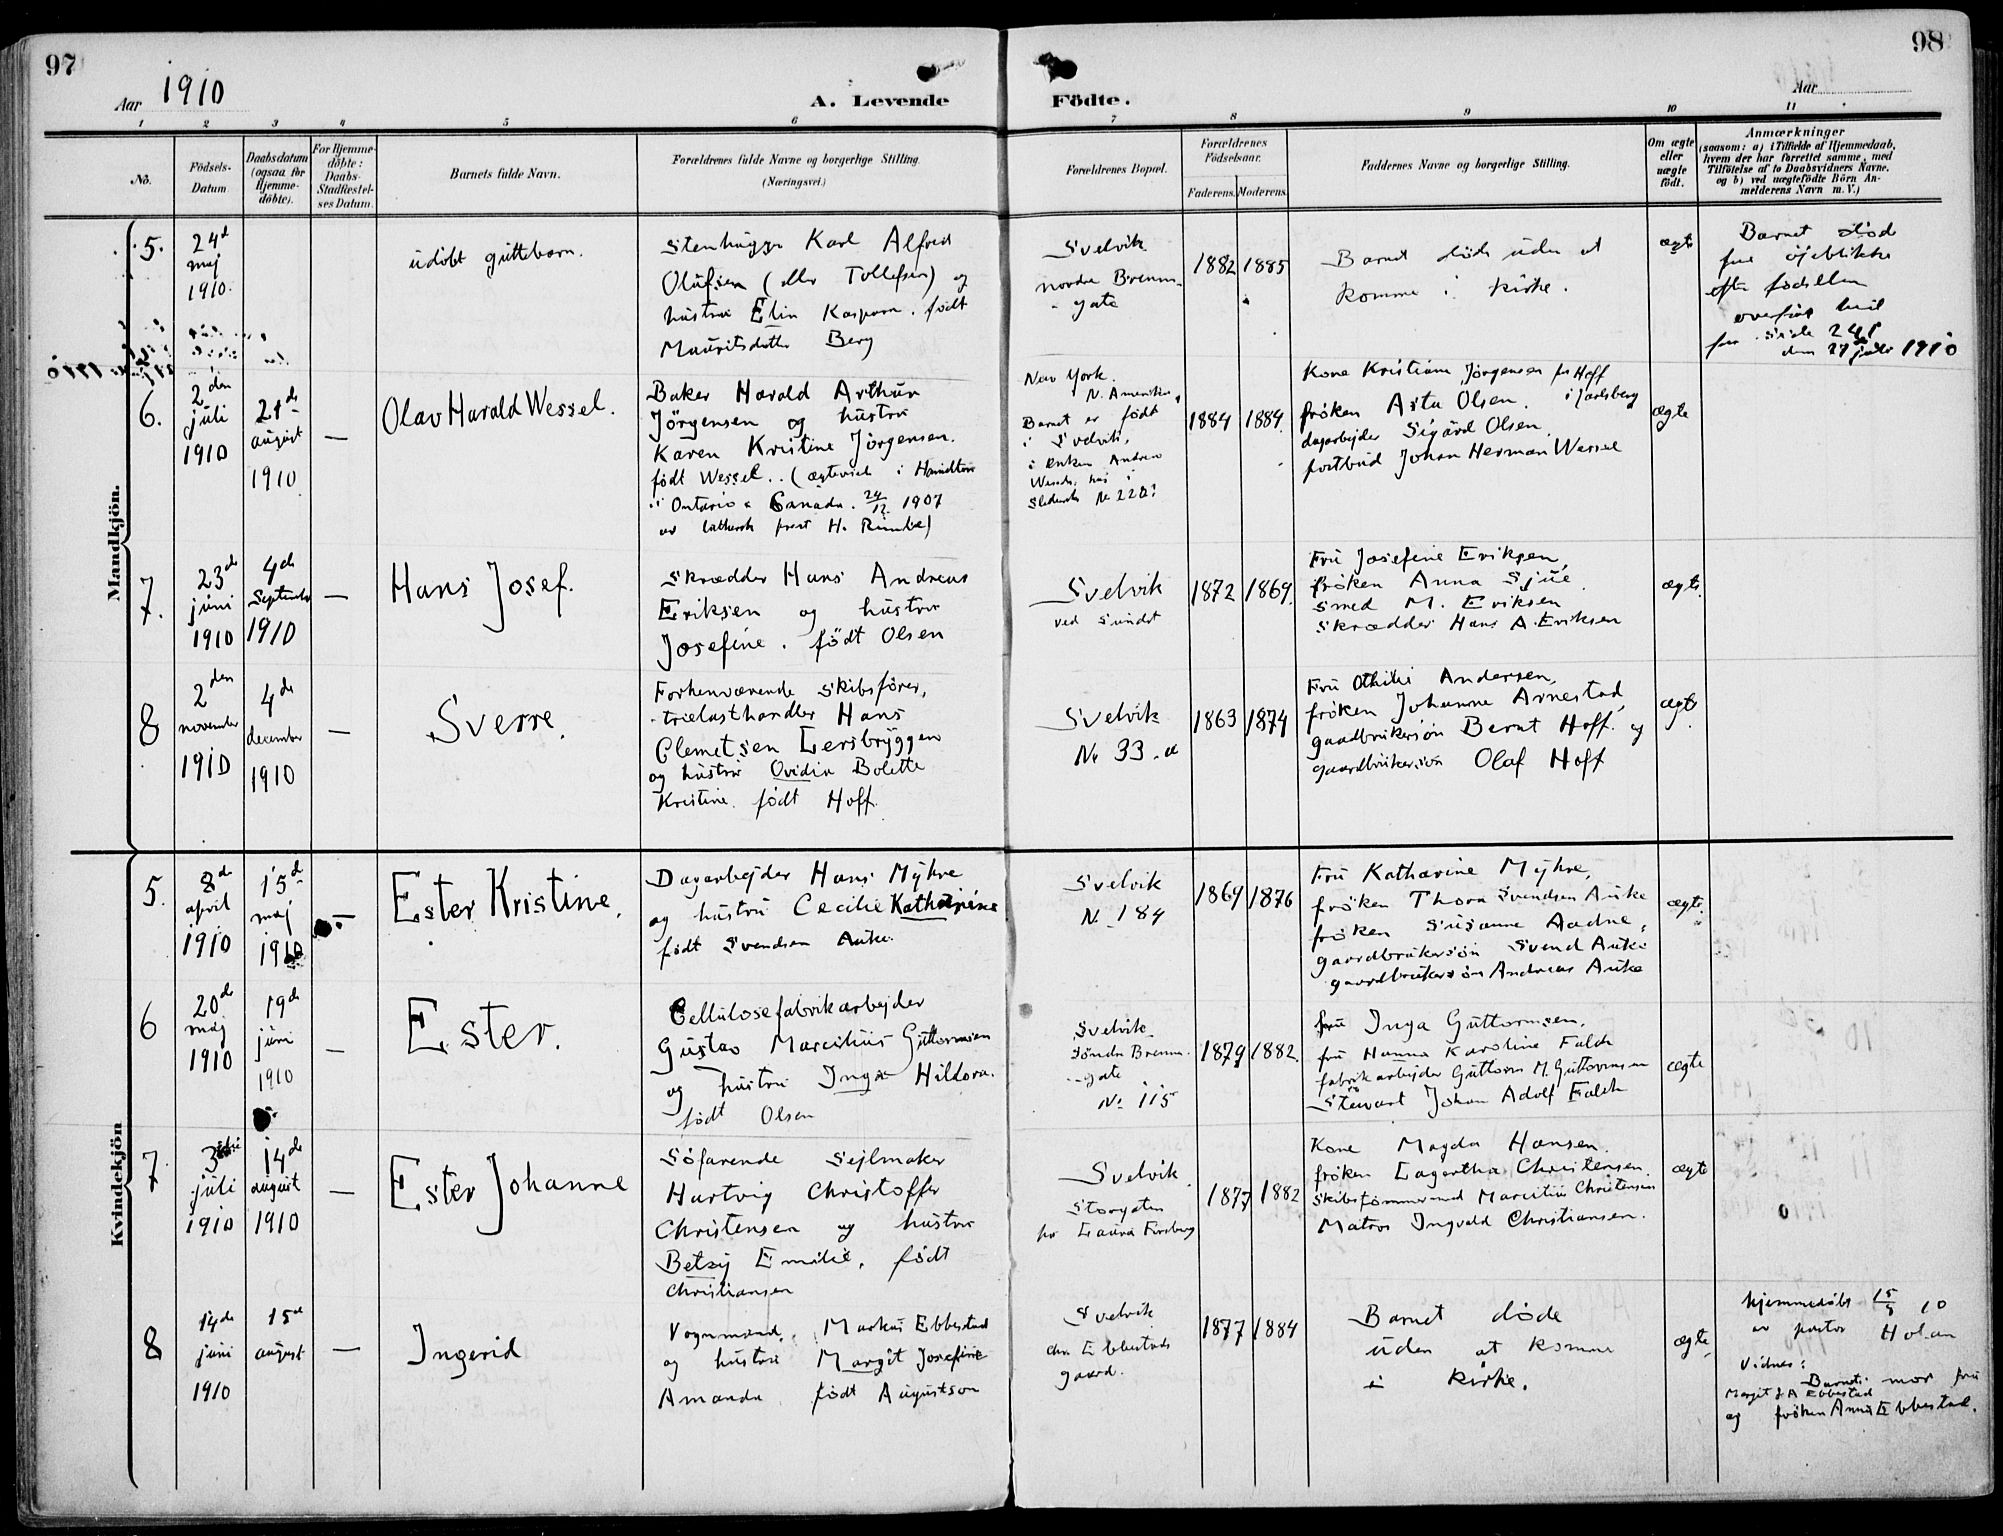 97
98
Aar 1910
A. Levende
Födte.
Aar
1 2 3 4 5 6 7 8 9 10 11
No.
Födsels-
Datum
Daabsdatum
(ogsaa for
Hjemme-
döbte).
For Hjemme-
döbte:
Daabs-
Stadfæstel-
ses Datum.
Barnets fulde Navn.
Forældrenes fulde Navne og borgerlige Stilling.
(Næringsvei.)
Forældrenes Bopæl.
Forældrenes
Födselsaar.
Faderens. Moderens.
Faddernes Navne og borgerlige Stilling.
Om ægte
eller
uægte
födt.
Anmærkninger
(saasom: a) i Tilfælde af Hjemmedaab,
hvem der har forrettet samme, med
Tilföielse af to Daabsvidners Navne,
og b) ved uægtefödte Börn An-
melderens Navn m. V.)
Mandkjön.
5.
24d
maj
1910.
udöbt guttebarn.
Stenhugger Karl Alfred
Olufsen (eller Tollefsen) og
hustru Elin Kaspara. födt
Mauritsdatter Berg
Svelvik
nordre Brenn-
gate
1882 1885
Barnet döde uden at
komme i kirke.
ægte
Barnet död
faa öjeblikke
efter födselen
overfört hid
fra side 241
den 27 juli 1910
6.
2den
juli
1910
21de
august
1910
—
Olav Harald Wessel.
Baker Harald Arthur
Jörgensen og hustru
Karen Kristine Jörgensen.
födt Wessel. (ægteviet i Hamilton
i Ontario i Canada. 24/12 1907
av luthersk prest H. Rimbe)
New York.
N. Amerika,
Barnet er födt
i Svelvik,
i enken Andrea
Wessels hus i
No 220
1884 1884.
Kone Kristiane Jörgensen fra Hoff
i Jarlsberg
fröken Asta Olsen.
dagarbejder Sigurd Olsen.
postbud Johan Herman Wessel
ægte
7.
23de
juni
1910
4de
September
1910
—
Hans Josef.
Skrædder Hans Andreas
Eriksen og hustru
Josefine. födt Olsen
Svelvik
ved Sundet
1872 1869.
Fru Josefine Eriksen,
fröken Anna Sjue
smed M. Eriksen
Skrædder Hans A. Eriksen
ægte.
8
2den
november
1910
4de
december
1910
—
Sverre.
Forhenværende skibsförer,
trælasthandler Hans
Clemetsen Lersbryggen
og hustru Ovidia Bolette
Kristine. födt Hoff.
Svelvik
No 33. a
1863 1874
Fru Othilie Andersen,
fröken Johanne Arnestad,
gaardbrukersön Bernt Hoff. og
gaardbrukersön Olaf Hoff
ægte
Kvindekjön
5.
8de
april
1910
15de
maj
1910
—
Ester Kristine.
Dagarbejder Hans Myhre
og hustru Cecilie Katharine
födt Svendsen Auke.
Svelvik
No 184
1869 1876
Fru Katharine Myhre,
fröken Thora Svendsen Auke
fröken Susanne Aadne,
gaardbrukersön Svend Auke
gaardbrukersön Andreas Auke
ægte.
6
20de
maj
1910
19de
juni
1910
—
Ester.
Cellulosefabrikarbejder
Gustav Marcelius Guttormsen
og hustru Inga Hildora.
födt Olsen
Svelvik
Söndre Brenn-
gate
No 115
1879 1882.
fru Inga Guttormsen.
fru Hanna Karoline Falch
fabrikarbejder Guttorm M. Guttormsen
Stewart Johan Adolf Falch
ægte
7
3die
juli
1910
14de
august
1910
—
Ester Johanne
Söfarende Sejlmaker
Hartvig Christoffer
Christensen og hustru
Betsy Emilie, födt
Christiansen
Svelvik.
Storgaten
hos Laura Forsberg
1877 1882
Kone Magda Hansen.
fröken Lagertha Christensen.
skibstömmermand Marcelius Christensen
Matros Ingvald Christiansen.
ægte
8
14de
juni
1910
15de
august
—
Ingerid
Vognmand, Markus Ebbestad
og hustru Margit Josefine
Amanda födt Augustson
Svelvik
chr. Ebbestads
gaard.
1877 1884
Barnet döde
uden at komme
i kirke.
ægte.
Hjemmedöbt 15/8 10
av pastor Holan
Vidner:
Barnets mor fru
Margit J A Ebbestad
og fröken Anna Ebbestad.